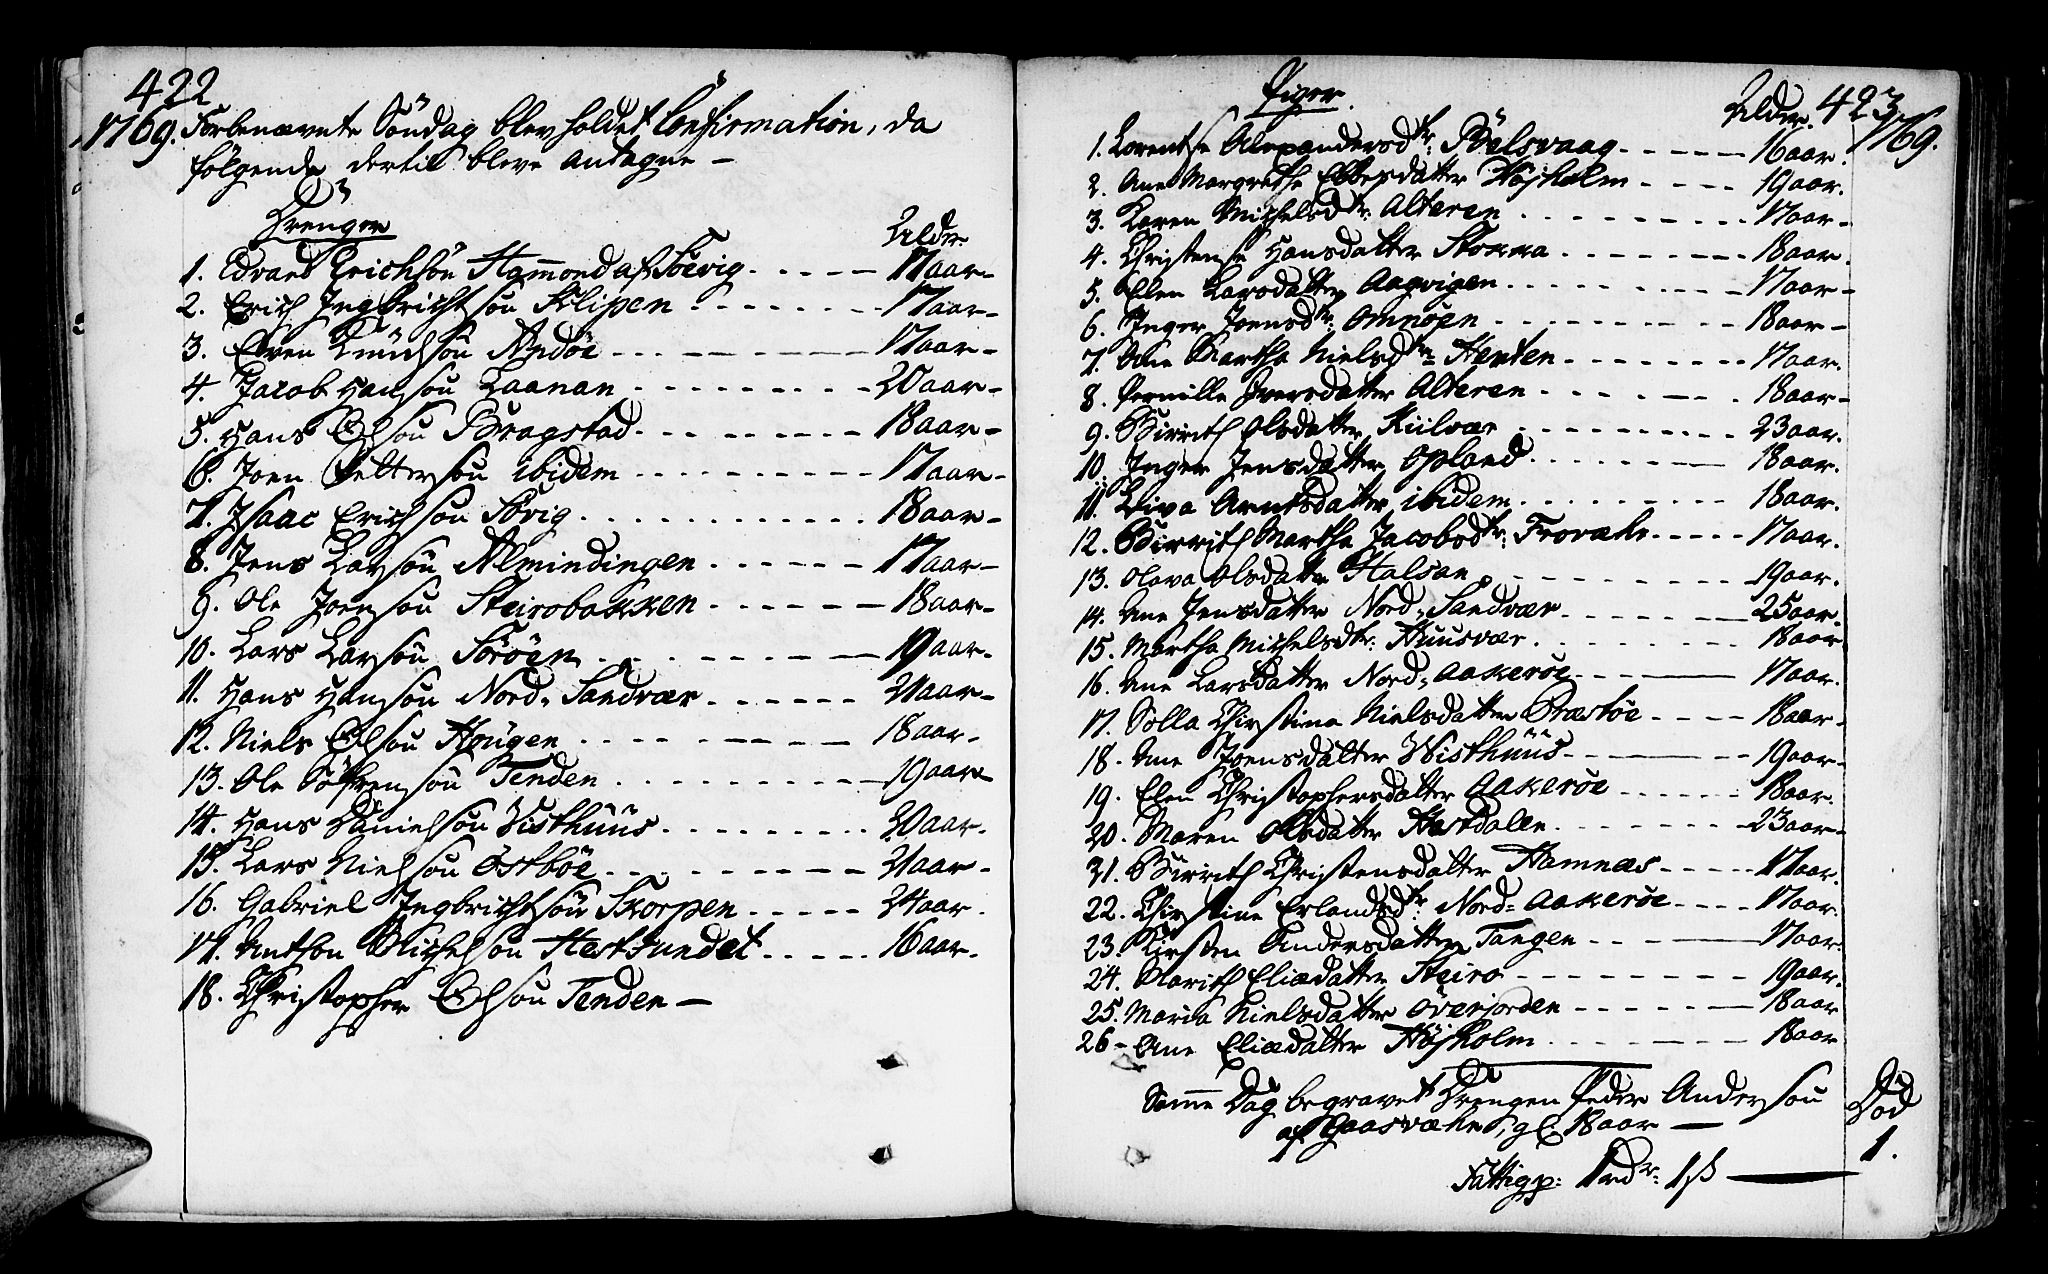 422
1769. Forbenævnte Söndag blev holdet Confirmation, da
følgende dertil bleve antagne -
Drenge
Alder
1. Edvard Erichsön Hammond af Söevig. 17 aar-
2. Erich Ingbrichtsön Klipen 17 aar-
3. Even Knudsön Andöe 17 aar-
4. Jacob Hansön Laanan 20 aar-
5. Hans Olsön Bragstad 18 aar-
6. Joen Pettersön ibidem 17 aar-
7. Isaac Erichsön Sövig 18 aar-
8. Jens Larsön Almindingen 17 aar-
9. Ole Joensön Steirobakken 18 aar-
10. Lars Larsön Söröen 19 aar-
11. Hans Hansön Nord-Sandvær 21 aar-
12. Niels Olsön Hougen 18 aar-
13. Ole Söfrensön Tenden 19 aar
14. Hans Danielsön Visthuus 20 aar.
15. Lars Nielsön Östböe 21 aar-
16. Gabriel Ingbrichtsön Skorpen 24 aar.
17. Anthon Michelsön Hestsundet 16 aar.
18. Christopher Olsön Tenden -
Piger
Alder. 423
1769.
1. Lorentse Alexandersdtr: Bölsvaag 16 aar.
2. Ane Margrethe Ebbesdatter Höjholm 19 aar.
3. Karen Michelsdtr: Alteren 17 aar-
4. Christense Hansdatter Stokka 18 aar.
5. Elen Larsdatter Aagvigen 17 aar-
6. Inger Joensdtr: Omnöen 18 aar-
7. Ane Martha Nielsdtr: Henten 17 aar.
8. Pernille Iversdatter Alteren 18 aar-
9. Birrith Olsdatter Kiilvær 23 aar.
10. Inger Jensdatter Opland 18 aar.
11. Liva Arntsdatter ibidem 18 aar.
12. Birrith Martha Jacobsdtr: Frovahr 17 aar.
13. Olava Olsdatter Halsan 19 aar.
14. Ane Jensdatter Nord-Sandvær 25 aar.
15. Martha Michelsdtr: Huusvær 18 aar
16. Ane Larsdatter Nord-Aakeröe 17 aar.
17. Solla Christina Nielsdatter Præstöe 18 aar-
18. Ane Joensdatter Visthuus 19 aar-
19. Elen Christophersdatter Aakeröe 18 aar.
20. Maren Olsdatter Hestdalen 23 aar-
21. Birrith Christensdatter Hamnæs 17 aar.
22. Christine Erlandsdtr: Nord-Aakeröe 17 aar.
23. Kirsten Andersdatter Tangen 17 aar.
24. Marith Eliædatter Steiro 19 aar.
25. Maria Nielsdatter Överjorden 18 aar
26- Ane Eliædatter Höjholm 18 aar
Samme Dag begravet Drengen Peder Andersön
af Gaasvahr, gl. 18 aar -
Död
1.
Fattigp: 1 rdr: 1 ß